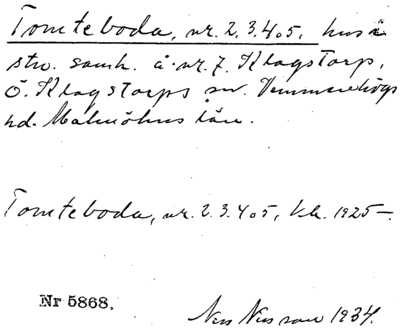 Tomteboda, nr. 2. 3. 4 o 5, hus i
stn. samh. å nr. 7. Klagstorp,
Ö. Klagstorps sn. Vemmenhögs
hd. Malmöhus län.
Tomteboda, nr. 2. 3. 4 o 5, kk. 1925 —.
Nr 5868.
1934.